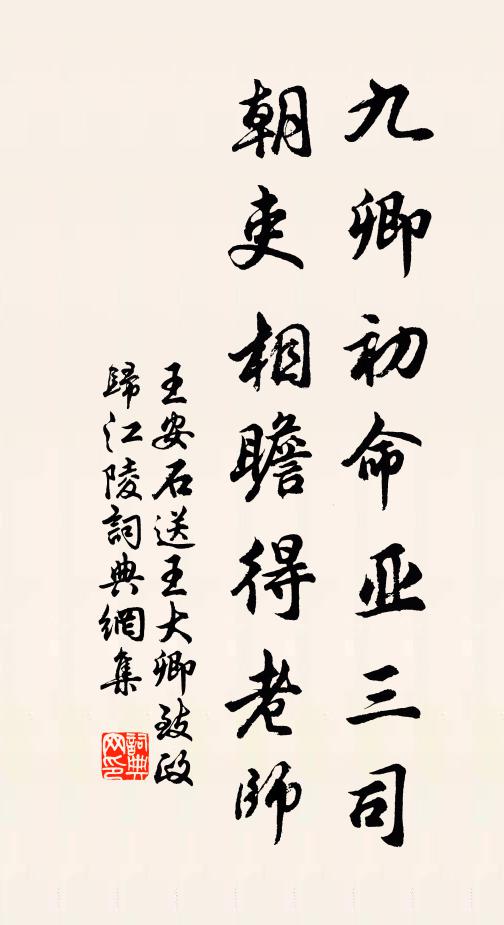 九卿初命亚三司
朝吏相瞻得老师
王安石送王大卿致政
歸江陵詞典網集
詞典
网印